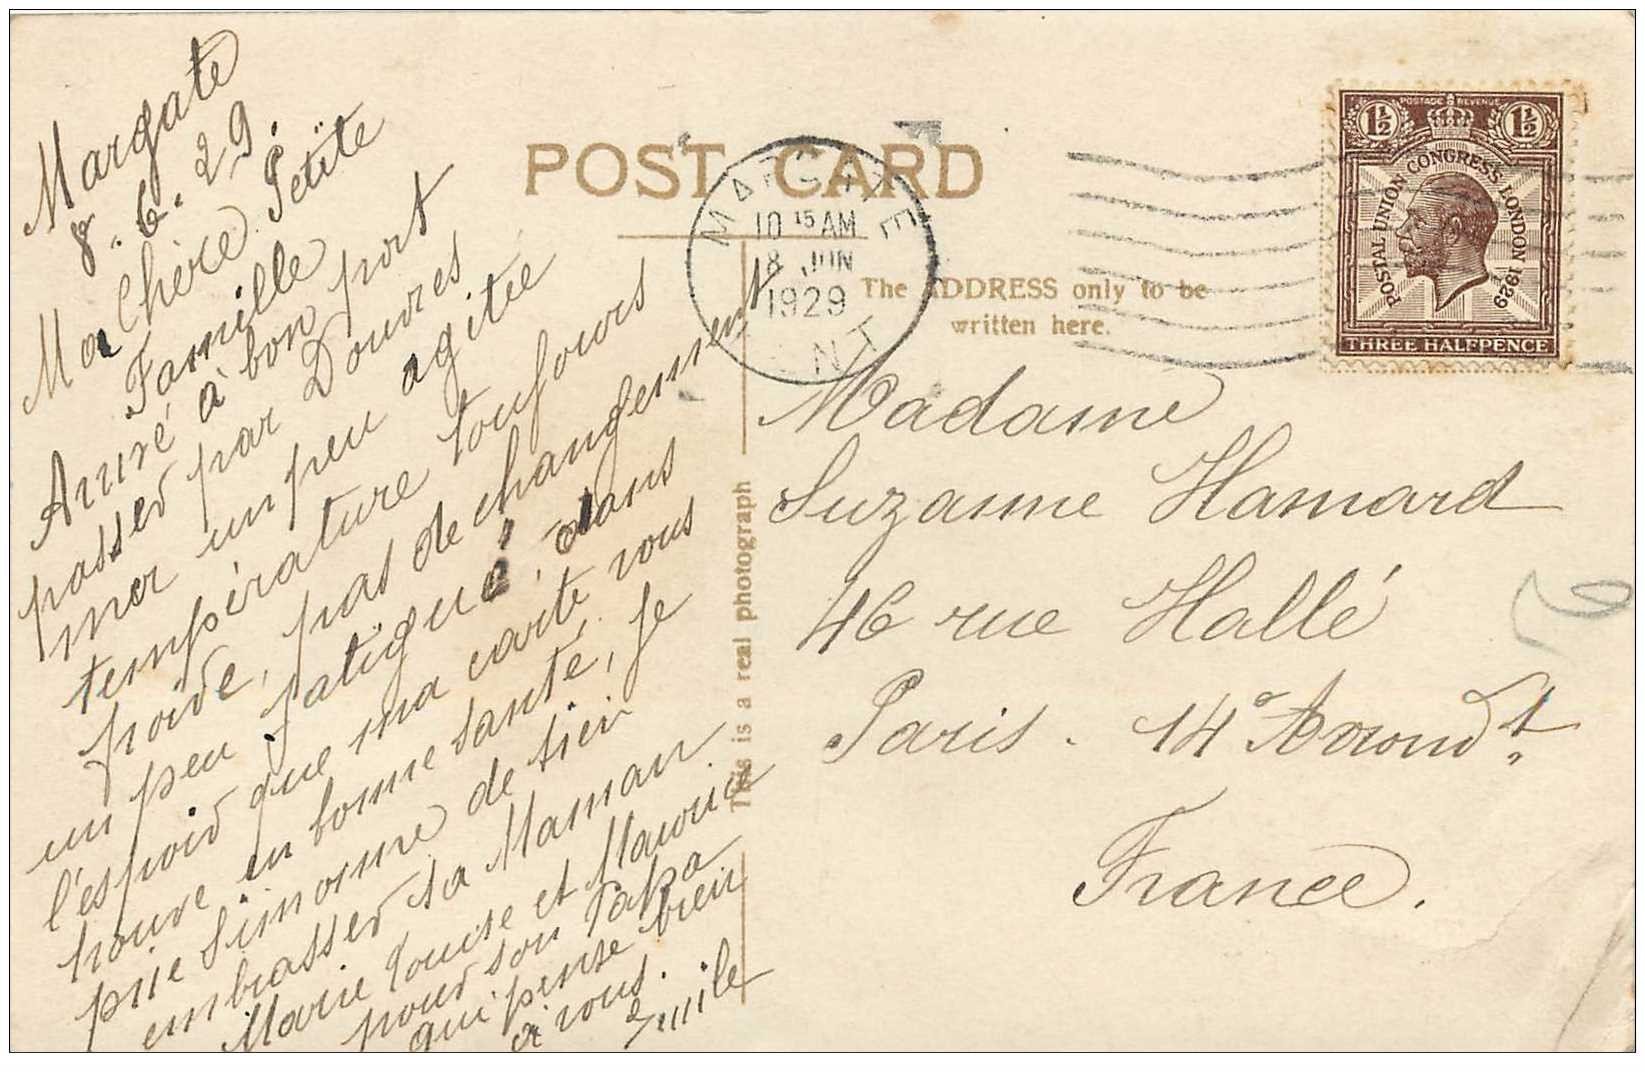 Margate
8.6.29.
Ma Chère Petite
Famille
Arrivé à bon port
passer par Douvres
mer un peu agitée
température toujours
froide, pas de changement
un peu fatigué, dans
l'espoir que ma carte vous
trouve en bonne santé, je
prie Simonne de bien
embrasser sa Maman
Marie Louise et Mauric
pour son Papa
qui pense bien
à vous.
Emile
POST CARD
MARGATE
10 15 AM
8 JUN
1929
KENT
The ADDRESS only to be
written here.
This is a real photograph
POSTAGE & REVENUE
1½ 1½
POSTAL UNION CONGRESS LONDON 1929
THREE HALFPENCE
Madame
Suzanne Hamard
46 rue Hallé
Paris. 14e Arrondt
France.